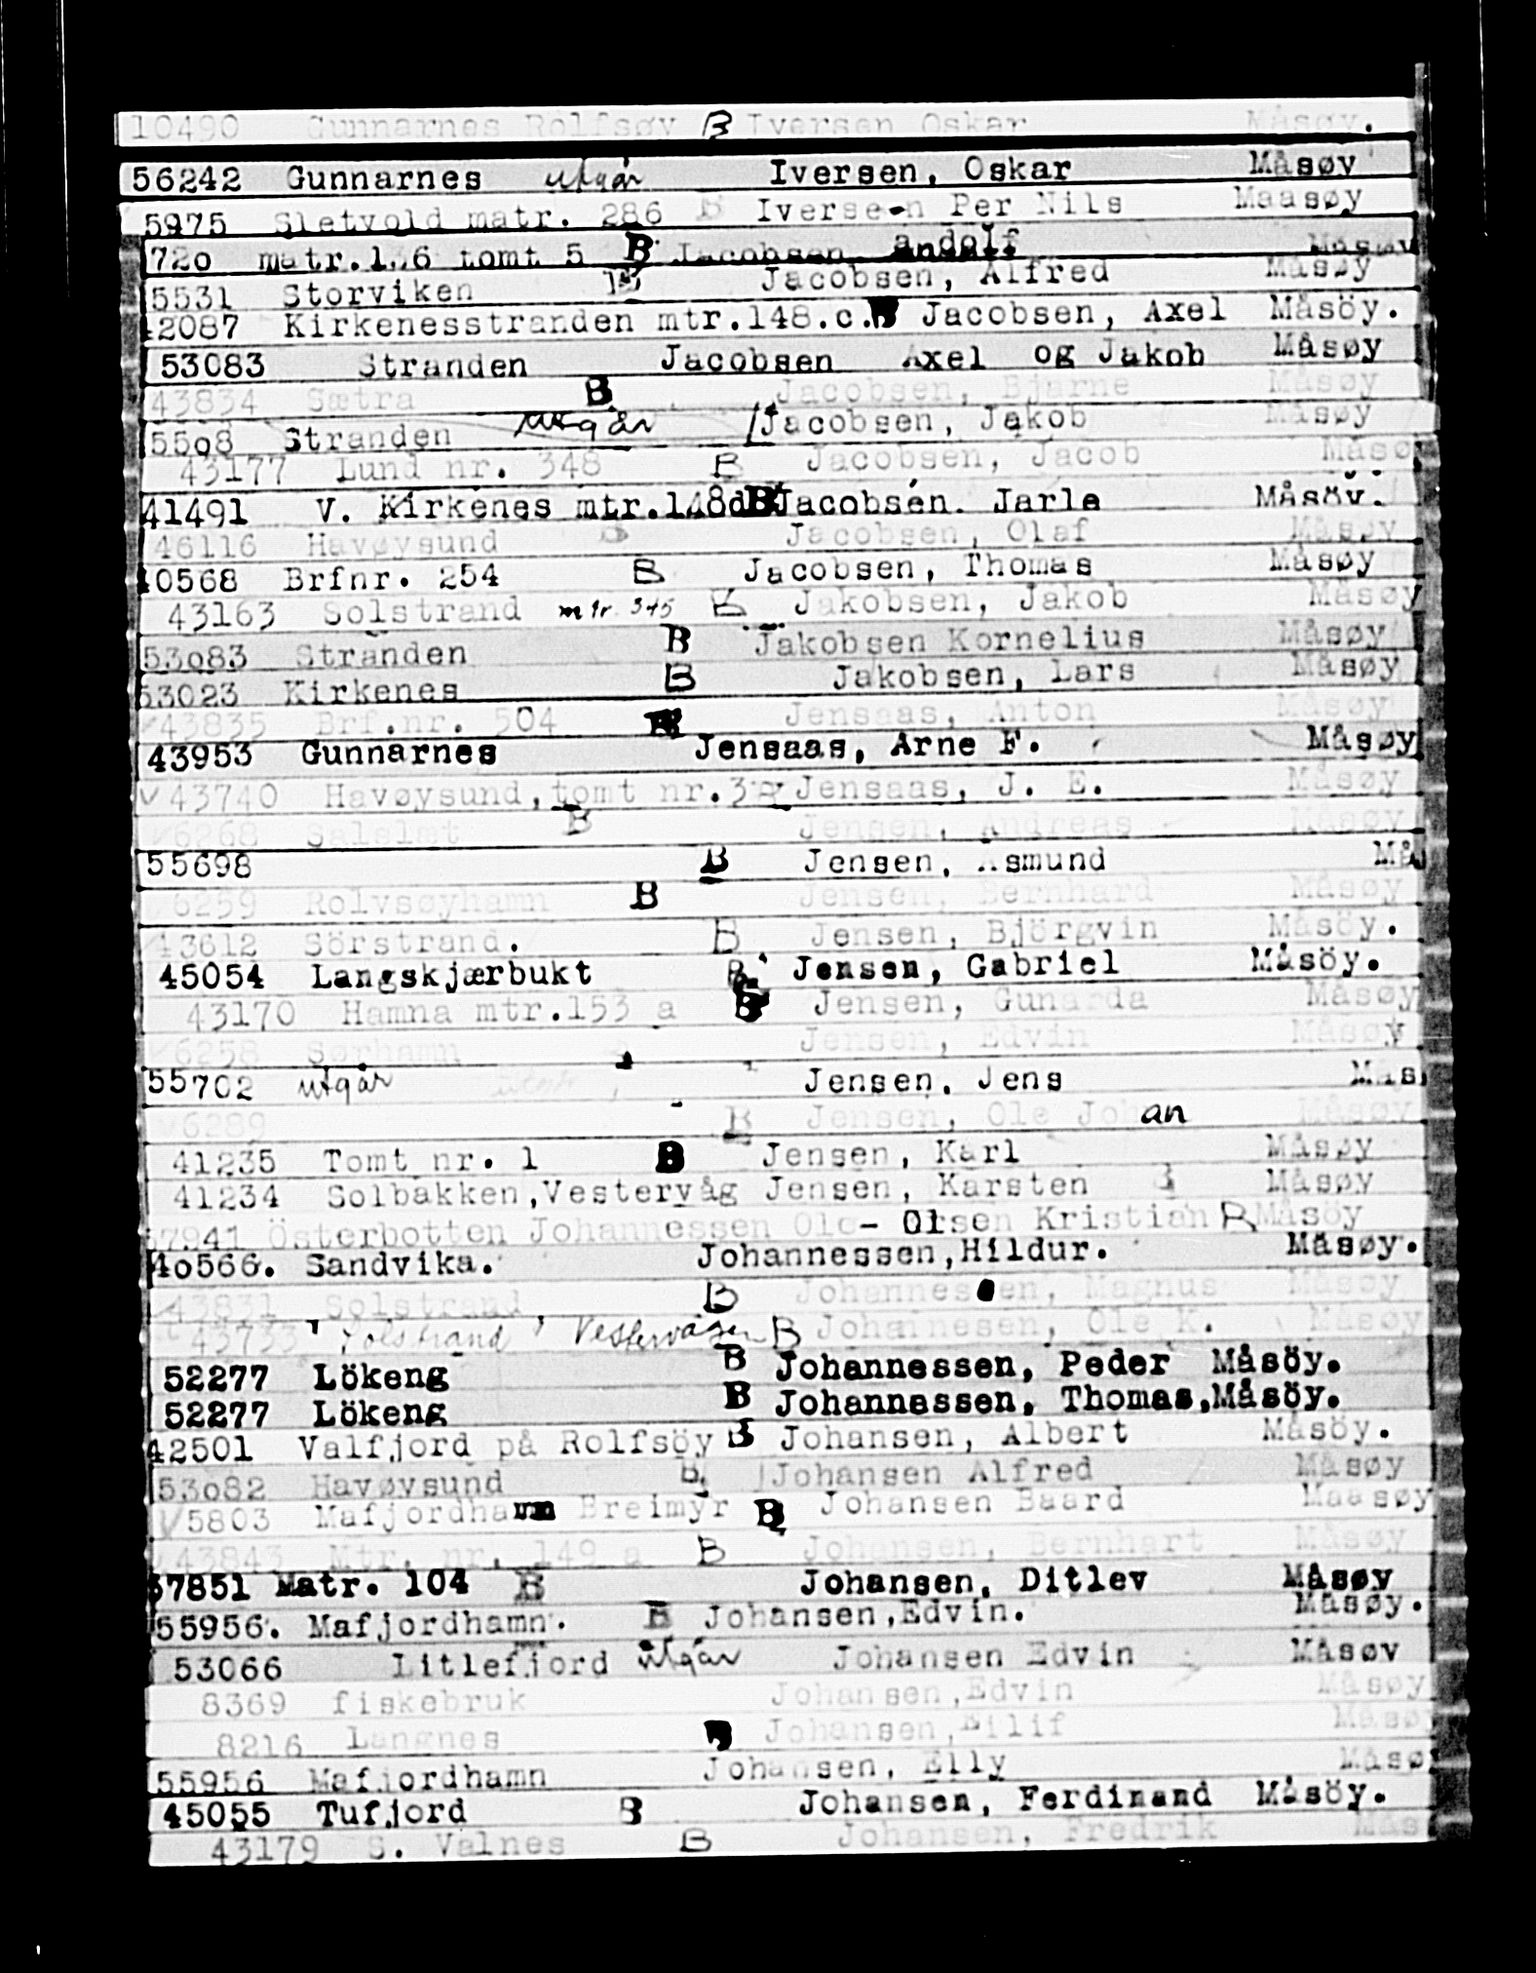 10490 Gunnarnes Rolfsøy B Iversen Oskar Måsøy.
56242 Gunnarnes utgår Iversen, Oskar Måsøy
5975 Sletvold matr. 286 B Iversen Per Nils Maasøy
720 matr.136 tomt 5 B Jacobsen andolf Måsøy
5531 Storviken B Jacobsen, Alfred Måsøy
42087 Kirkenesstranden mtr.148.c. B Jacobsen, Axel Måsöy.
53083 Stranden Jacobsen Axel og Jakob Måsøy
43834 Sætra B Jacobsen, Bjarne Måsøy
5508 Stranden utgår Jacobsen, Jakob Måsøy
43177 Lund nr. 348 B Jacobsen, Jacob Måsø
41491 V. Kirkenes mtr.148d B Jacobsen. Jarle Måsöy.
46116 Havøysund B Jacobsen, Olaf Måsøy
40568 Brfnr. 254 B Jacobsen, Thomas Måsøy
43163 Solstrand mtr. 345 B Jakobsen, Jakob Måsøy
53083 Stranden B Jakobsen Kornelius Måsøy
53023 Kirkenes B Jakobsen, Lars Måsøy
43835 Brf.nr. 504 B Jensaas, Anton Måsøy
43953 Gunnarnes Jensaas, Arne F. Måsøy
43740 Havøysund, tomt nr.3 Jensaas, J. E. Måsøy
6268 B Jensen, Andreas Måsøy
55698 B Jensen, Asmund Må
6259 Rolvsøyhamn B Jensen, Bernhard Måsøy
43612 Sörstrand. B Jensen, Björgvin Måsöy.
45054 Langskjærbukt B Jensen, Gabriel Måsöy.
43170 Hamna mtr.153 a B Jensen, Gunarda Måsøy
6258 Sørhamn Jensen, Edvin Måsøy
55702 utgår Jensen, Jens Mås
6289 B Jensen, Ole Johan Måsøy
41235 Tomt nr. 1 B Jensen, Karl Måsøy
41234 Solbakken,Vestervåg Jensen, Karsten Måsøy
57941 Österbotten Johannessen Ole- Olsen Kristian B Måsöy
40566. Sandvika. Johannessen,Hildur. Måsøy.
43831 Solstrand, B Johannessen, Magnus Måsøy
43733 Solstrand Vestervågen B Johannesen, Ole K. Måsøy
52277 Lökeng B Johannessen, Peder Måsöy.
52277 Lökeng B Johannessen, Thomas,Måsöy.
42501 Valfjord på Rolfsöy B Johansen, Albert Måsöy.
53082 Havøysund B Johansen Alfred Måsøy
5803 Mafjordhamn Breimyr B Johansen Baard Maasøy
43843 Mtr. nr. 149 a B Johansen, Bernhart Måsøy
37851 Matr. 104 B Johansen, Ditlev Måsøy
55956. Mafjordhamn. B Johansen,Edvin. Måsøy.
53066 Litlefjord utgår Johansen Edvin Måsøv
8369 fiskebruk Johansen,Edvin Måsøy
8216 Langnes B Johansen,Eilif Måsø
55956 Mafjordhamn Johansen, Elly Måsø
45055 Tufjord B Johansen, Ferdinand Måsöy.
43179 S. Valnes B Johansen, Fredrik Mås